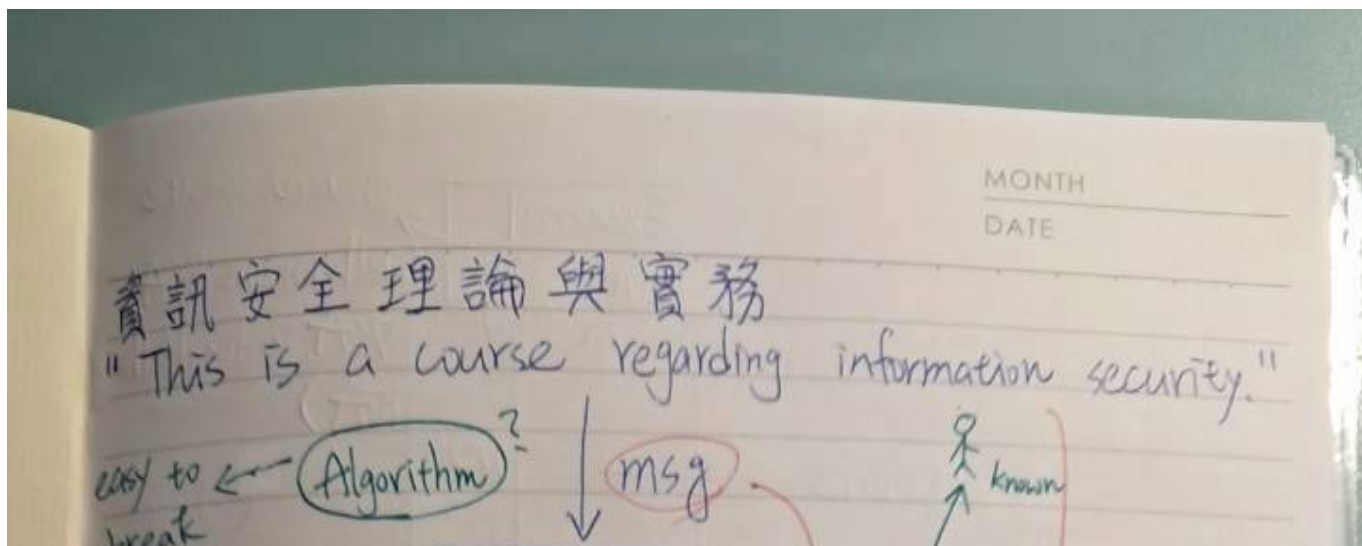 MONTH
DATE
資訊安全理論與實務
"This is a course regarding information security."
easy to ← Algorithm? msg known
break